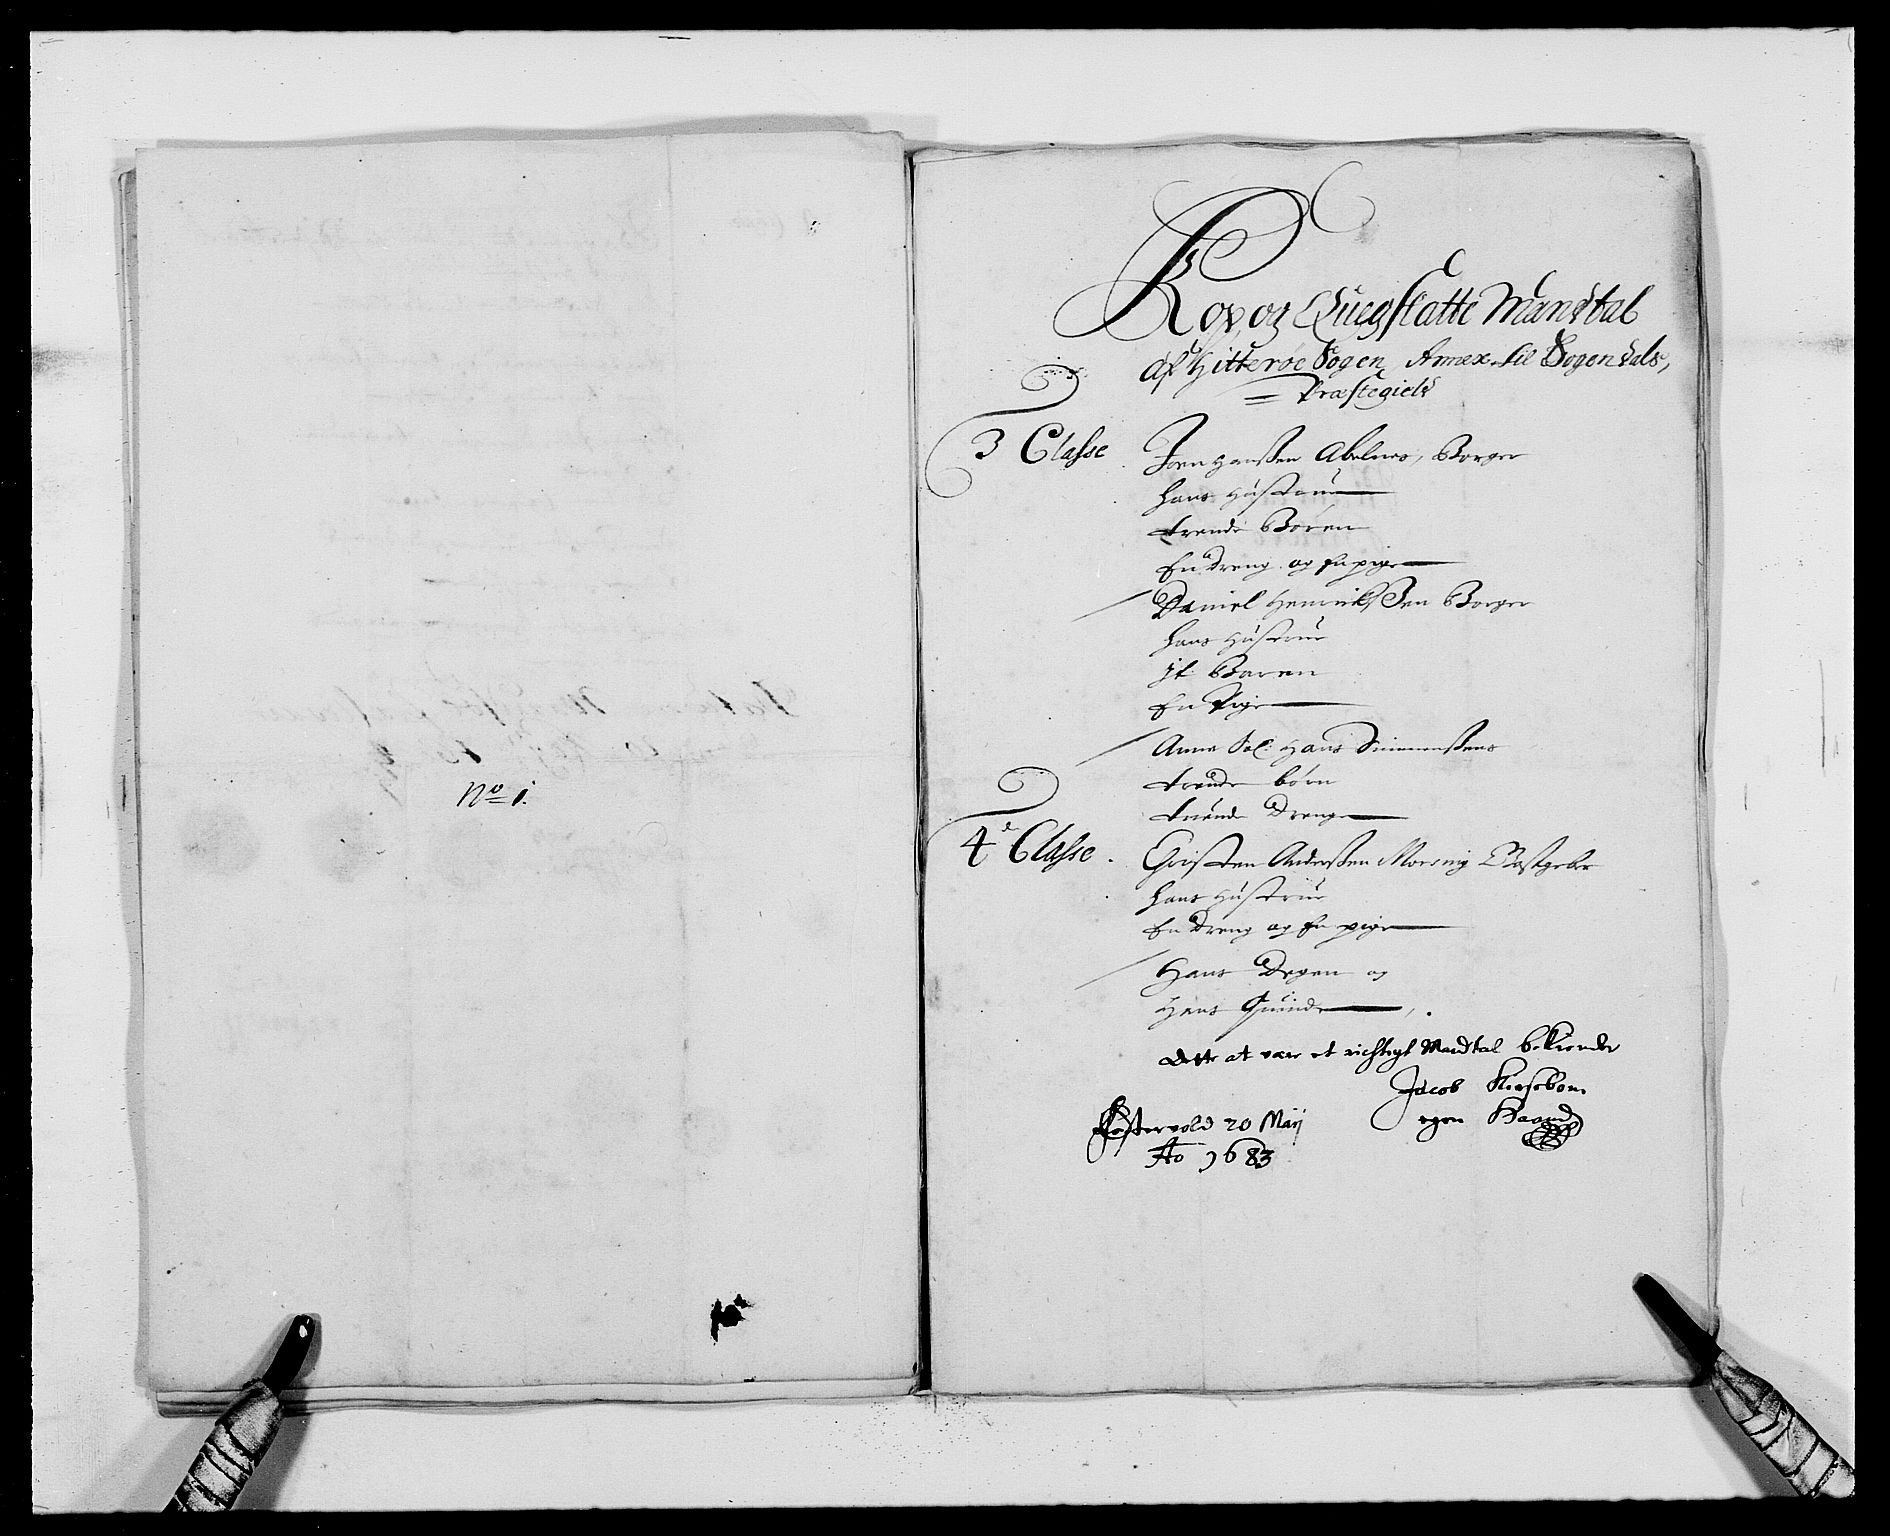 No 1.
Kop og Quegskatte Mandtal
af Hitterøe Sogen Annex til Sogendals,
Præstegield
3 Classe
Joen Hanssen Abelnes, Borger
hans Hustrue
trende Børen
En dreng og En pige
Daniel Hendrikssen Borger
hans Hustrue
it Baren
En Pige
Anna Sal: Hans Simmenssens
trende børn
trende Drenge
4de Classe.
Christen Anderssen Moersing Gastgeber
hans Hustrue
En Dreng og En pige
Hans Degen og
Hans Quinde
dette at være et richtigt Mandtal bekiender
Jacob Kirsebom
egen Haand
Føstervold 20 Maij
Ao 1683